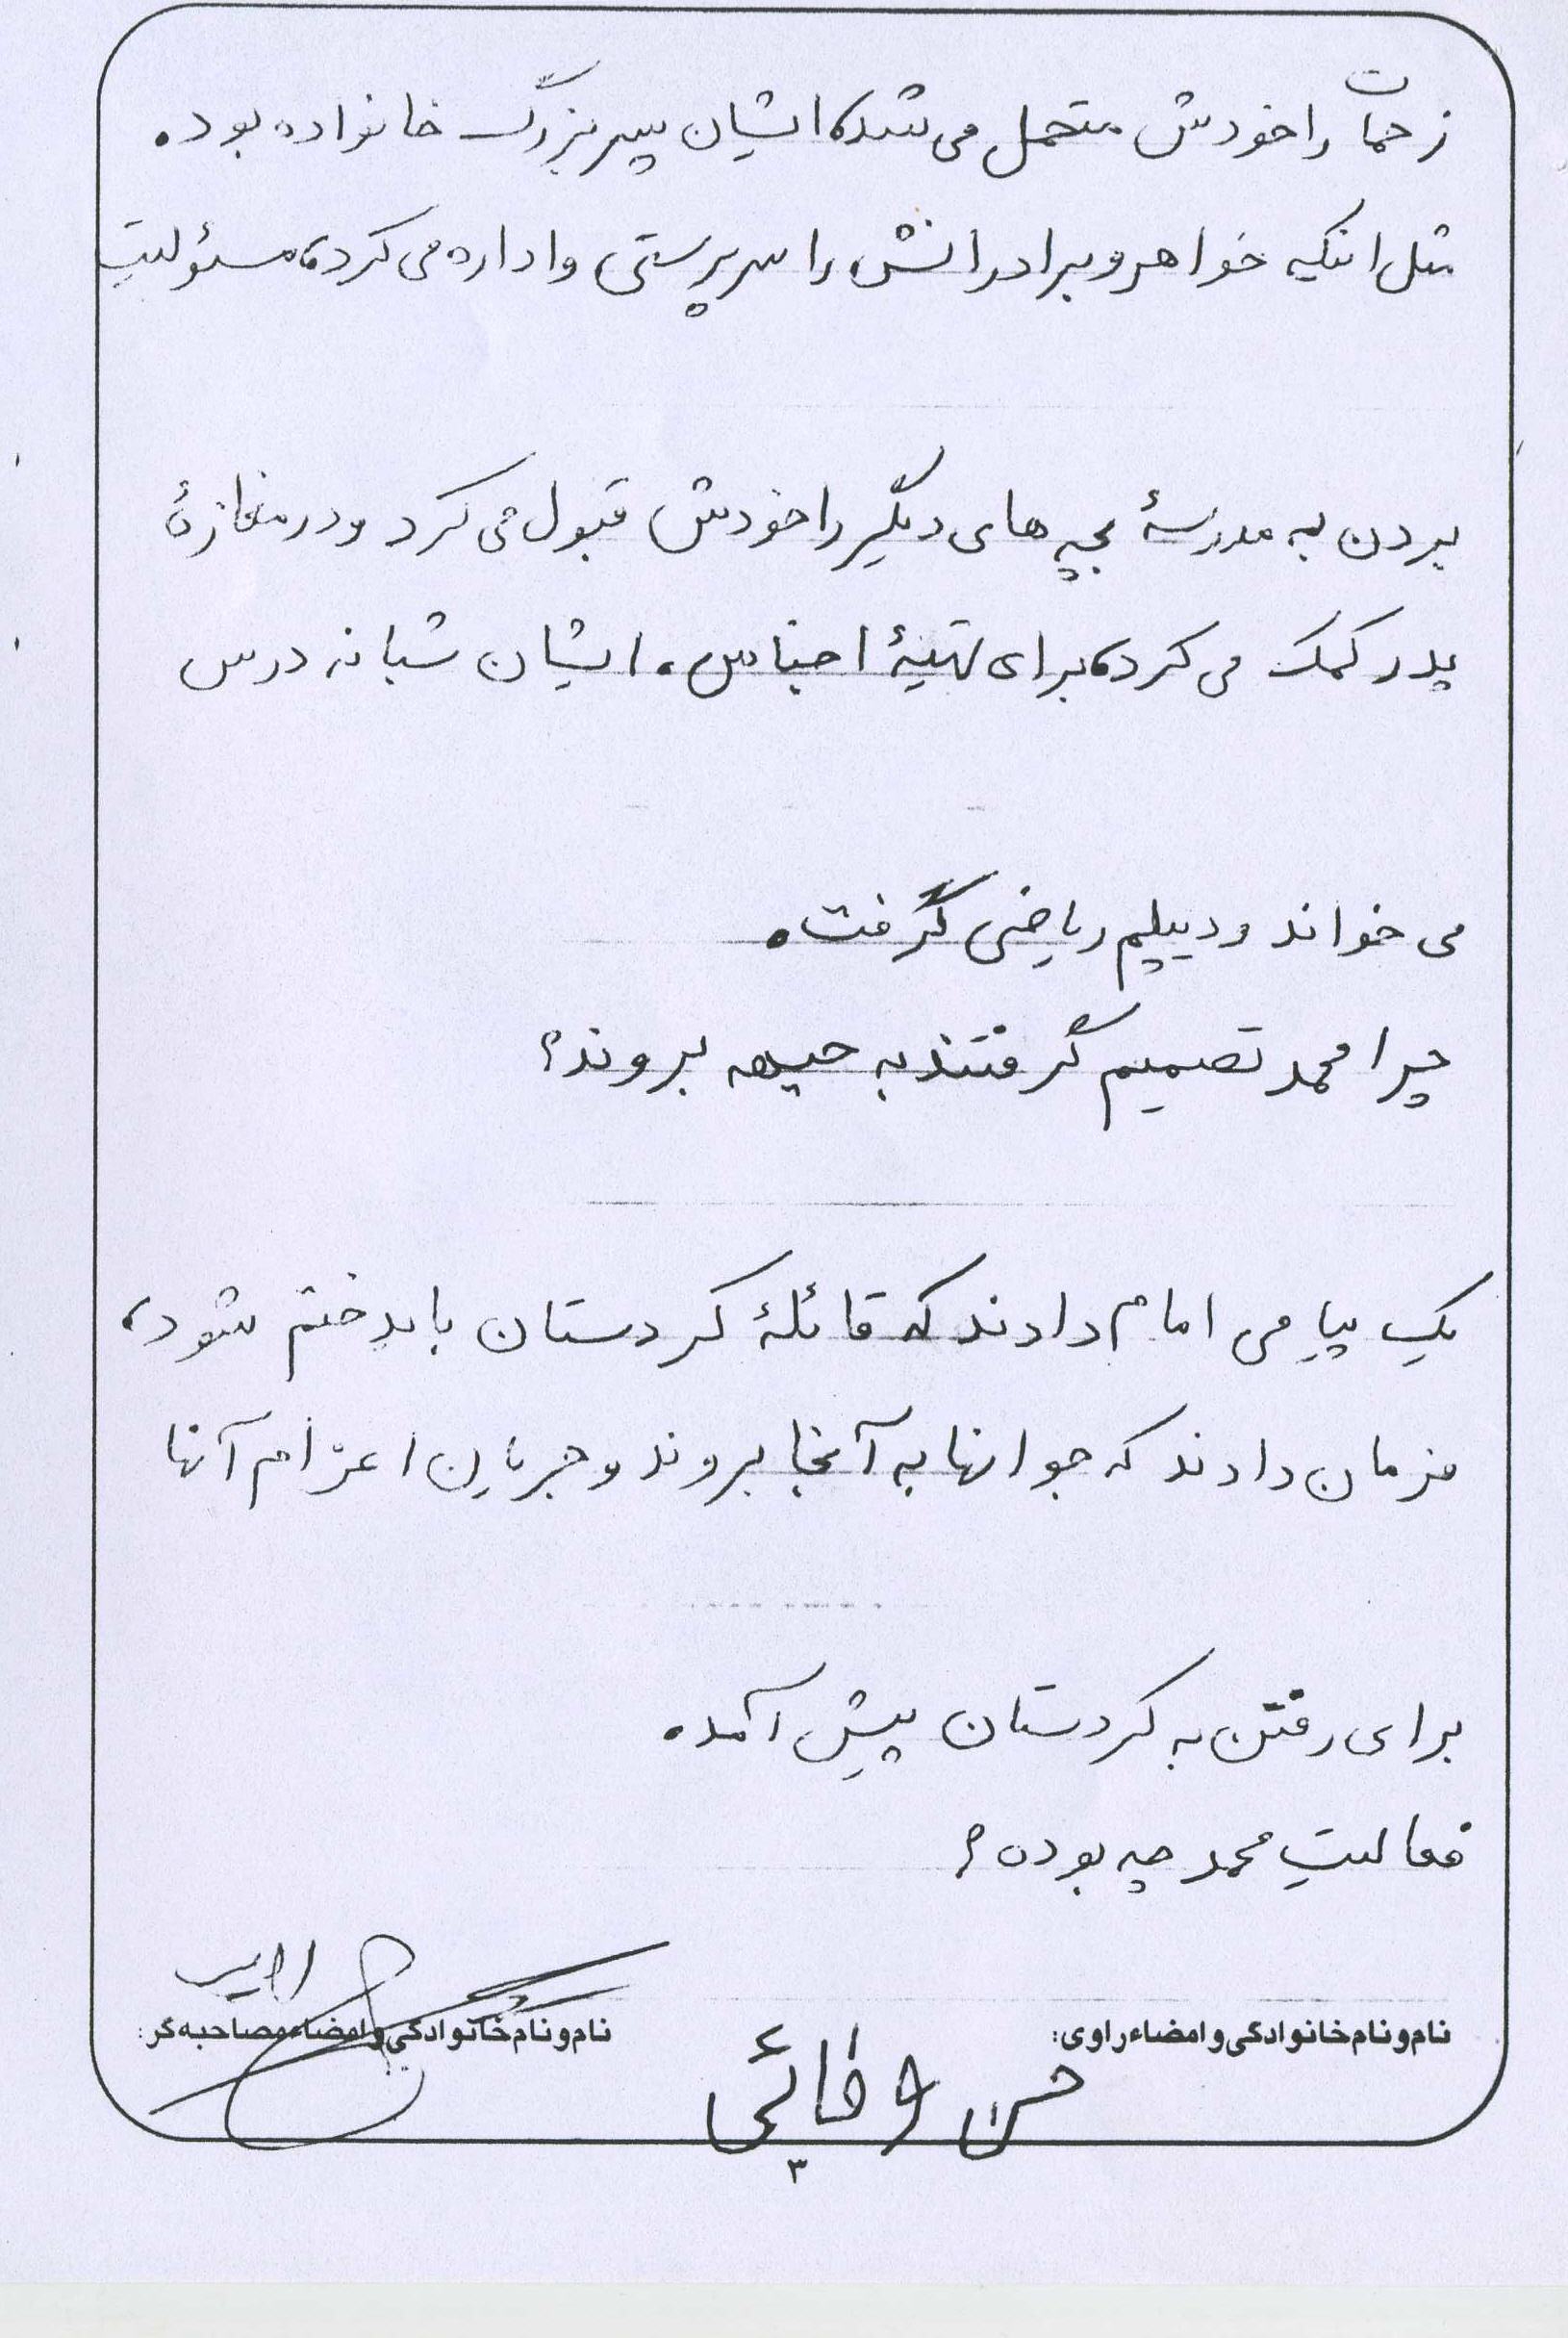 زحمات را خودش متحمل می شد، ایشان پسر بزرگ خانواده بود.
مثل اینکه خواهر و برادرانش را سرپرستی و اداره می کرد، مسئولیت
بردن به مدرسۀ بچه های دیگر را خودش قبول می کرد و در مغازۀ
پدر کمک می کرد، برای تهیۀ اجناس. ایشان شبانه درس
می خواند و دیپلم ریاضی گرفت.
چرا محمد تصمیم گرفتند به جبهه بروند؟
یک پیامی امام دادند که قائلۀ کردستان باید ختم شود،
فرمان دادند که جوانها به آنجا بروند و جریان اعزام آنها
برای رفتن به کردستان پیش آمد.
فعالیت محمد چه بوده؟
نام و نام خانوادگی و امضاء راوی:
نام و نام خانوادگی و امضاء مصاحبه گر:
حسن وفائی
۳